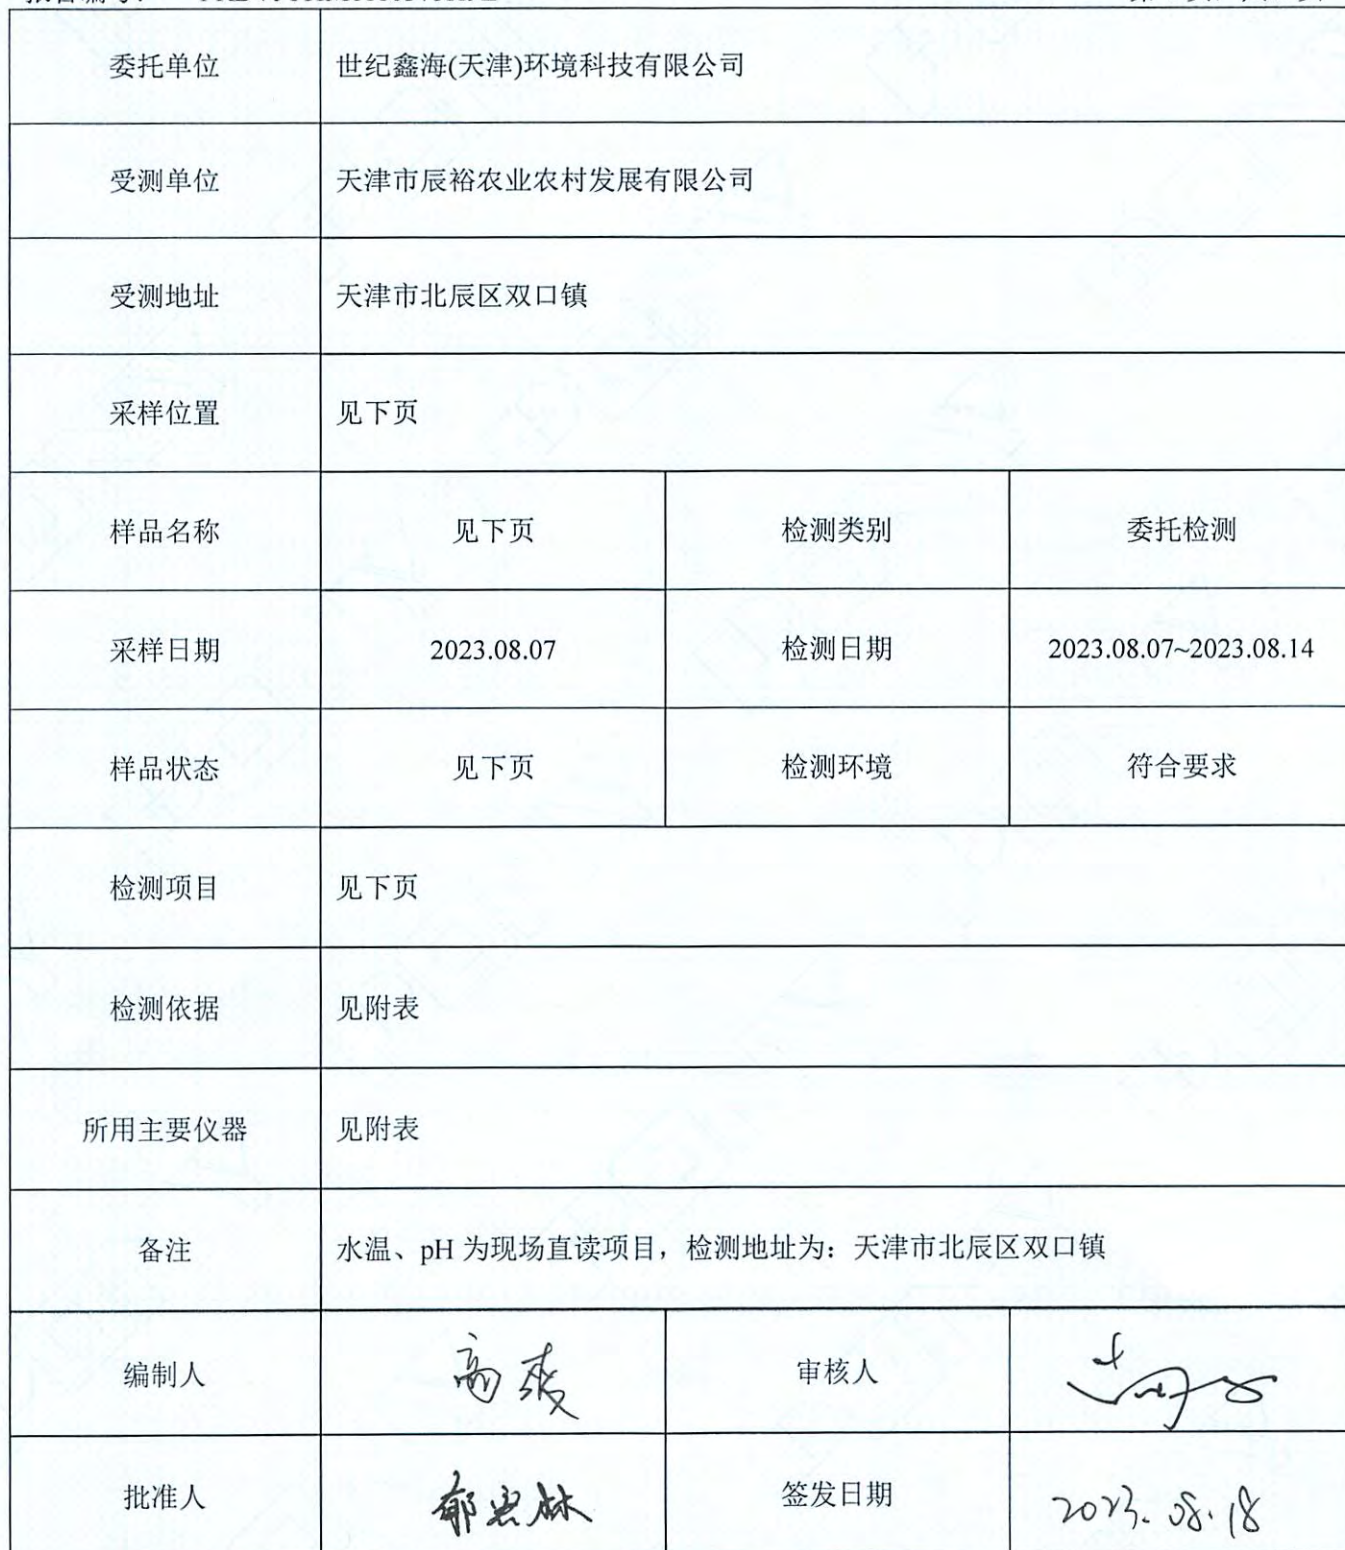 委托单位 世纪鑫海(天津)环境科技有限公司
受测单位 天津市辰裕农业农村发展有限公司
受测地址 天津市北辰区双口镇
采样位置 见下页
样品名称 见下页 检测类别 委托检测
采样日期 2023.08.07 检测日期 2023.08.07~2023.08.14
样品状态 见下页 检测环境 符合要求
检测项目 见下页
检测依据 见附表
所用主要仪器 见附表
备注 水温、pH 为现场直读项目，检测地址为：天津市北辰区双口镇
编制人 高爽 审核人
批准人 签发日期 2023.08.18